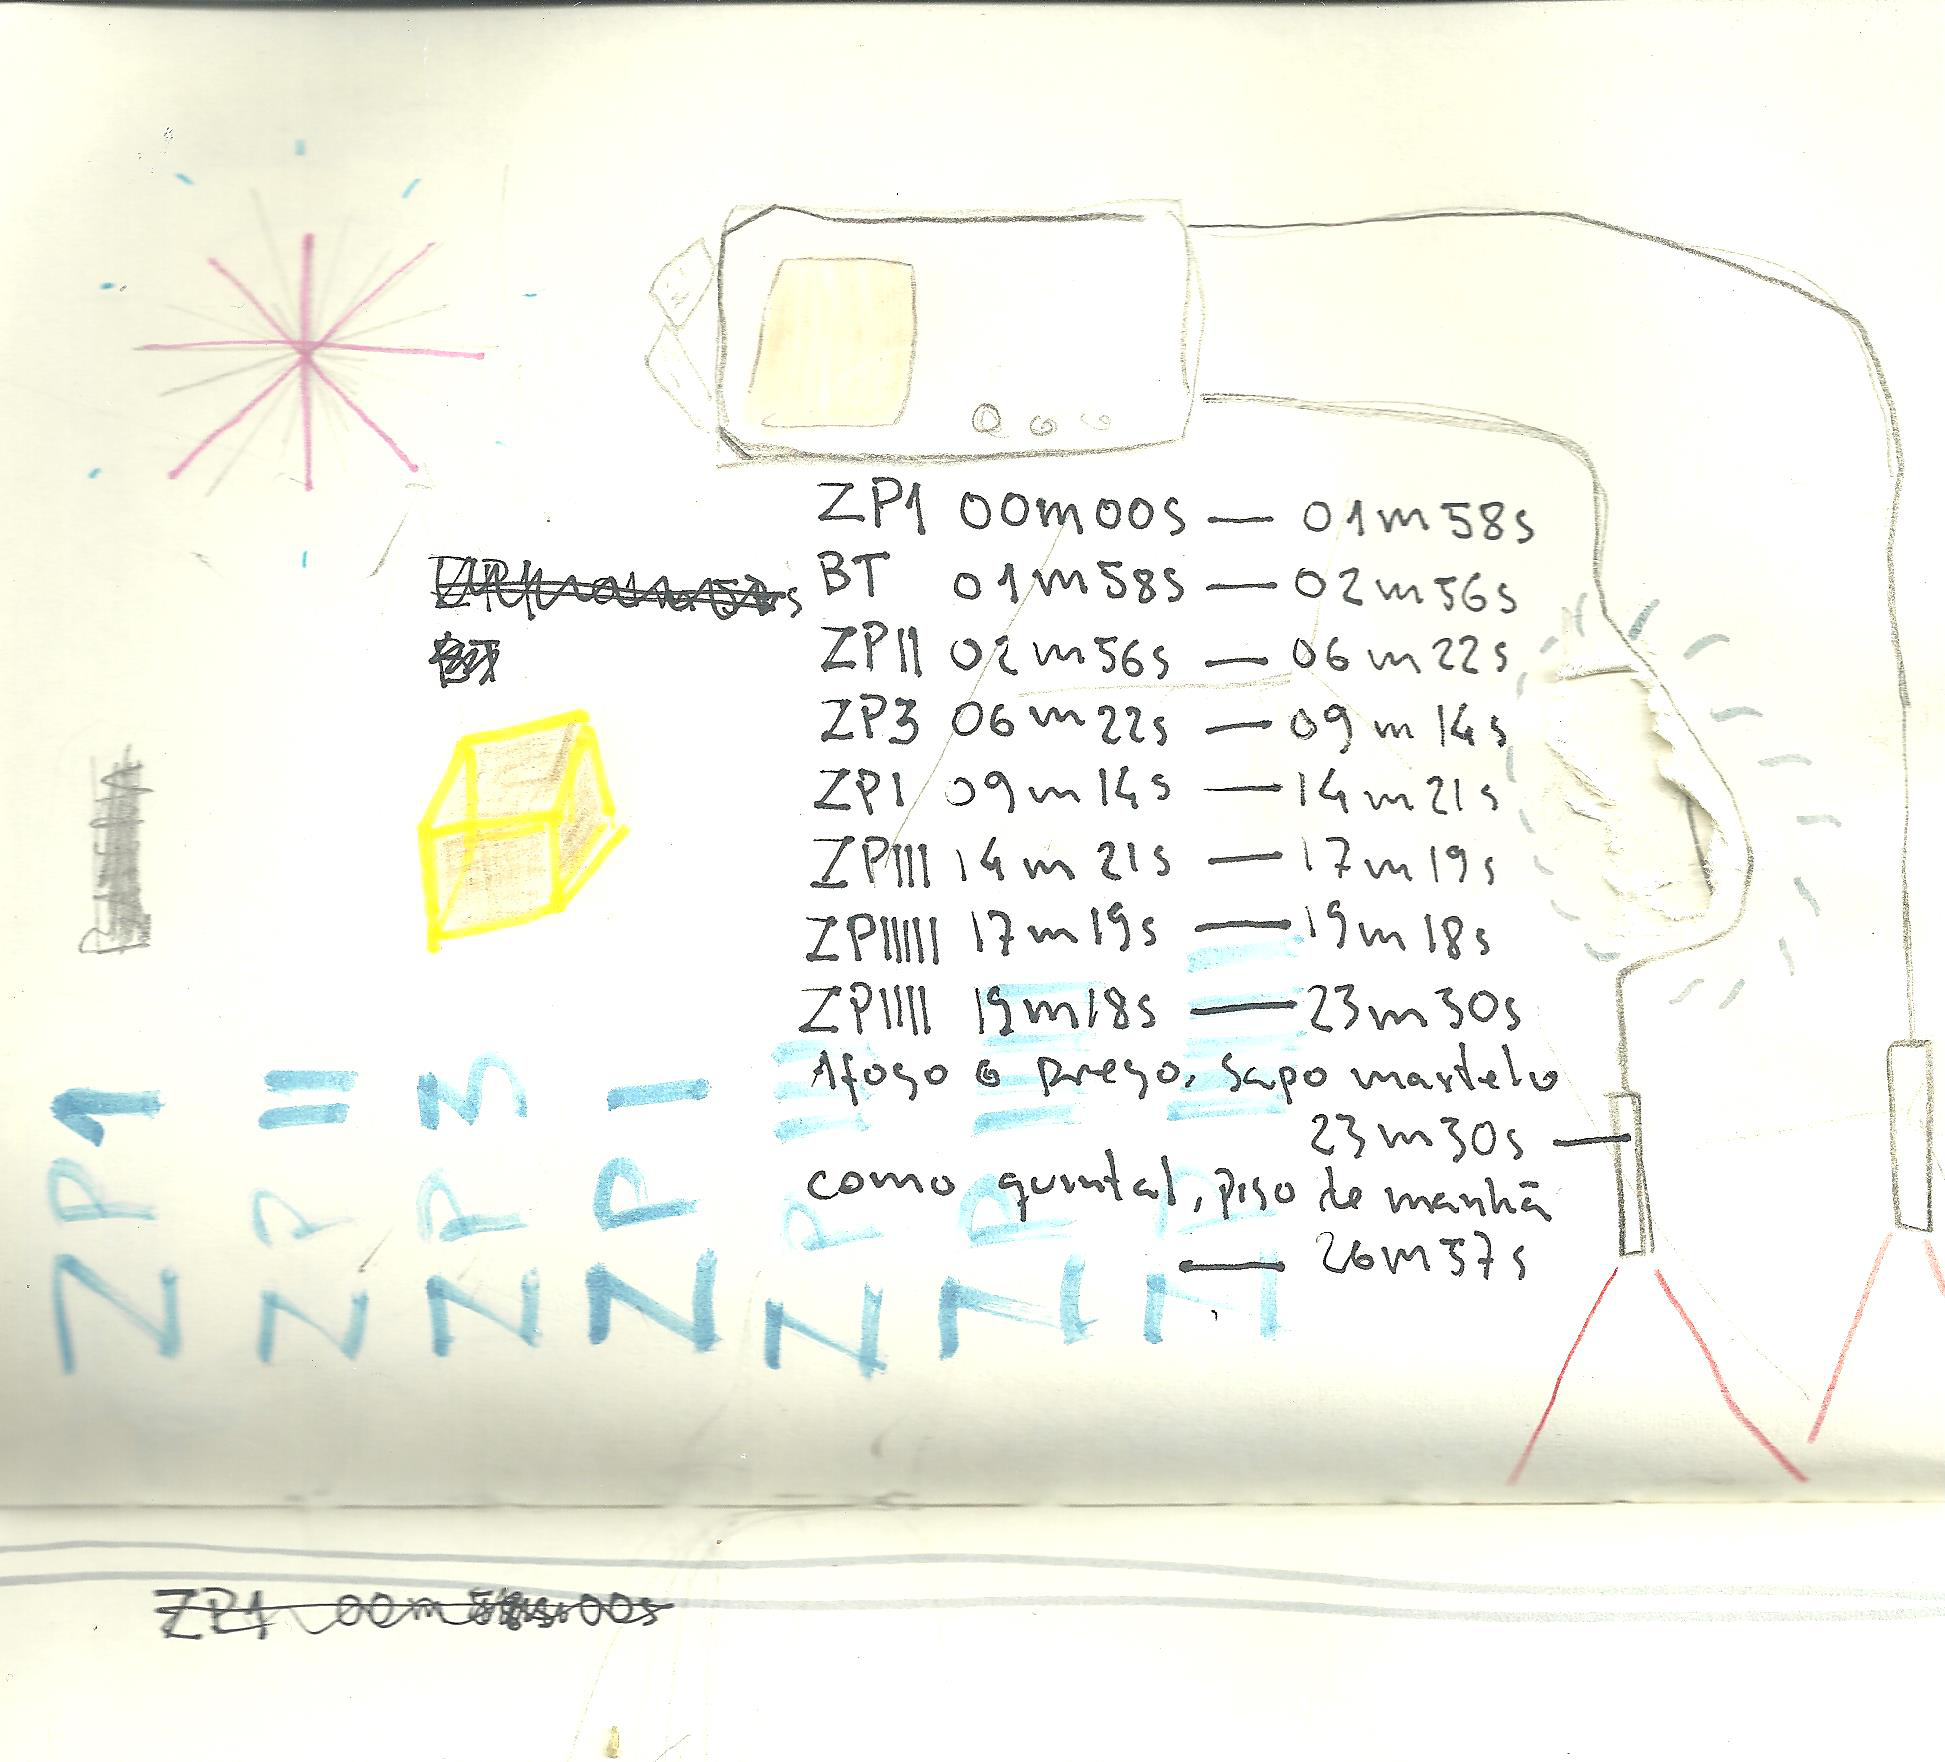 ZP1 00m00s — 01m58s
BT 01m58s — 02m56s
ZPII 02m56s — 06m22s
ZP3 06m22s — 09m14s
ZPI 09m14s — 14m21s
ZPIII 14m21s — 17m19s
ZPIIIII 17m19s — 19m18s
ZPIIII 19m18s — 23m30s
Afogo o prego, sapo martelo
23m30s —
como quintal, piso de manhã
— 26m37s
ZP1
ZP II
ZP 3
ZP I
ZP III
ZP IIIII
ZP IIII
ZP1 00m 00s